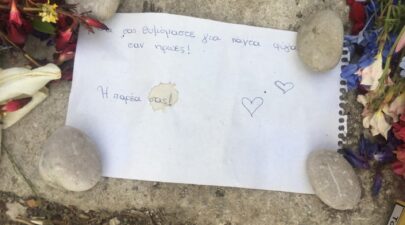 σας θυμόμαστε για παντα φιλα
σαν ηρωες!
Η παρέα σας!